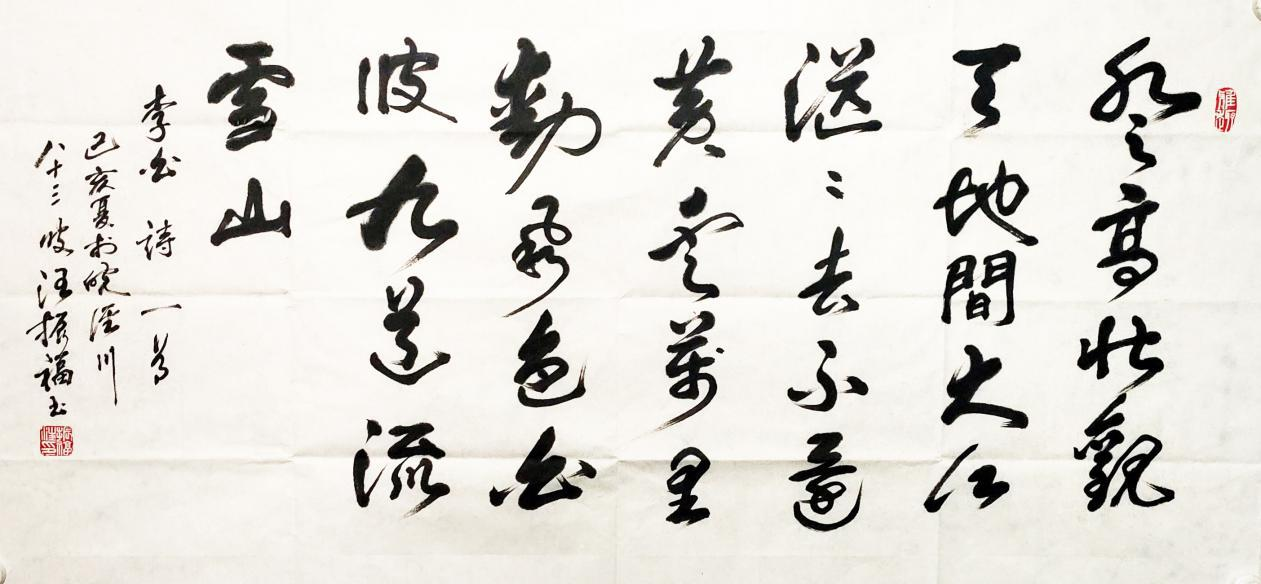 登高壮觀
天地間大江
茫〻去不還
黄雲萬里
動風色白
波九道流
雪山
李白詩一首
己亥夏於皖涇川
八十三汪振福书